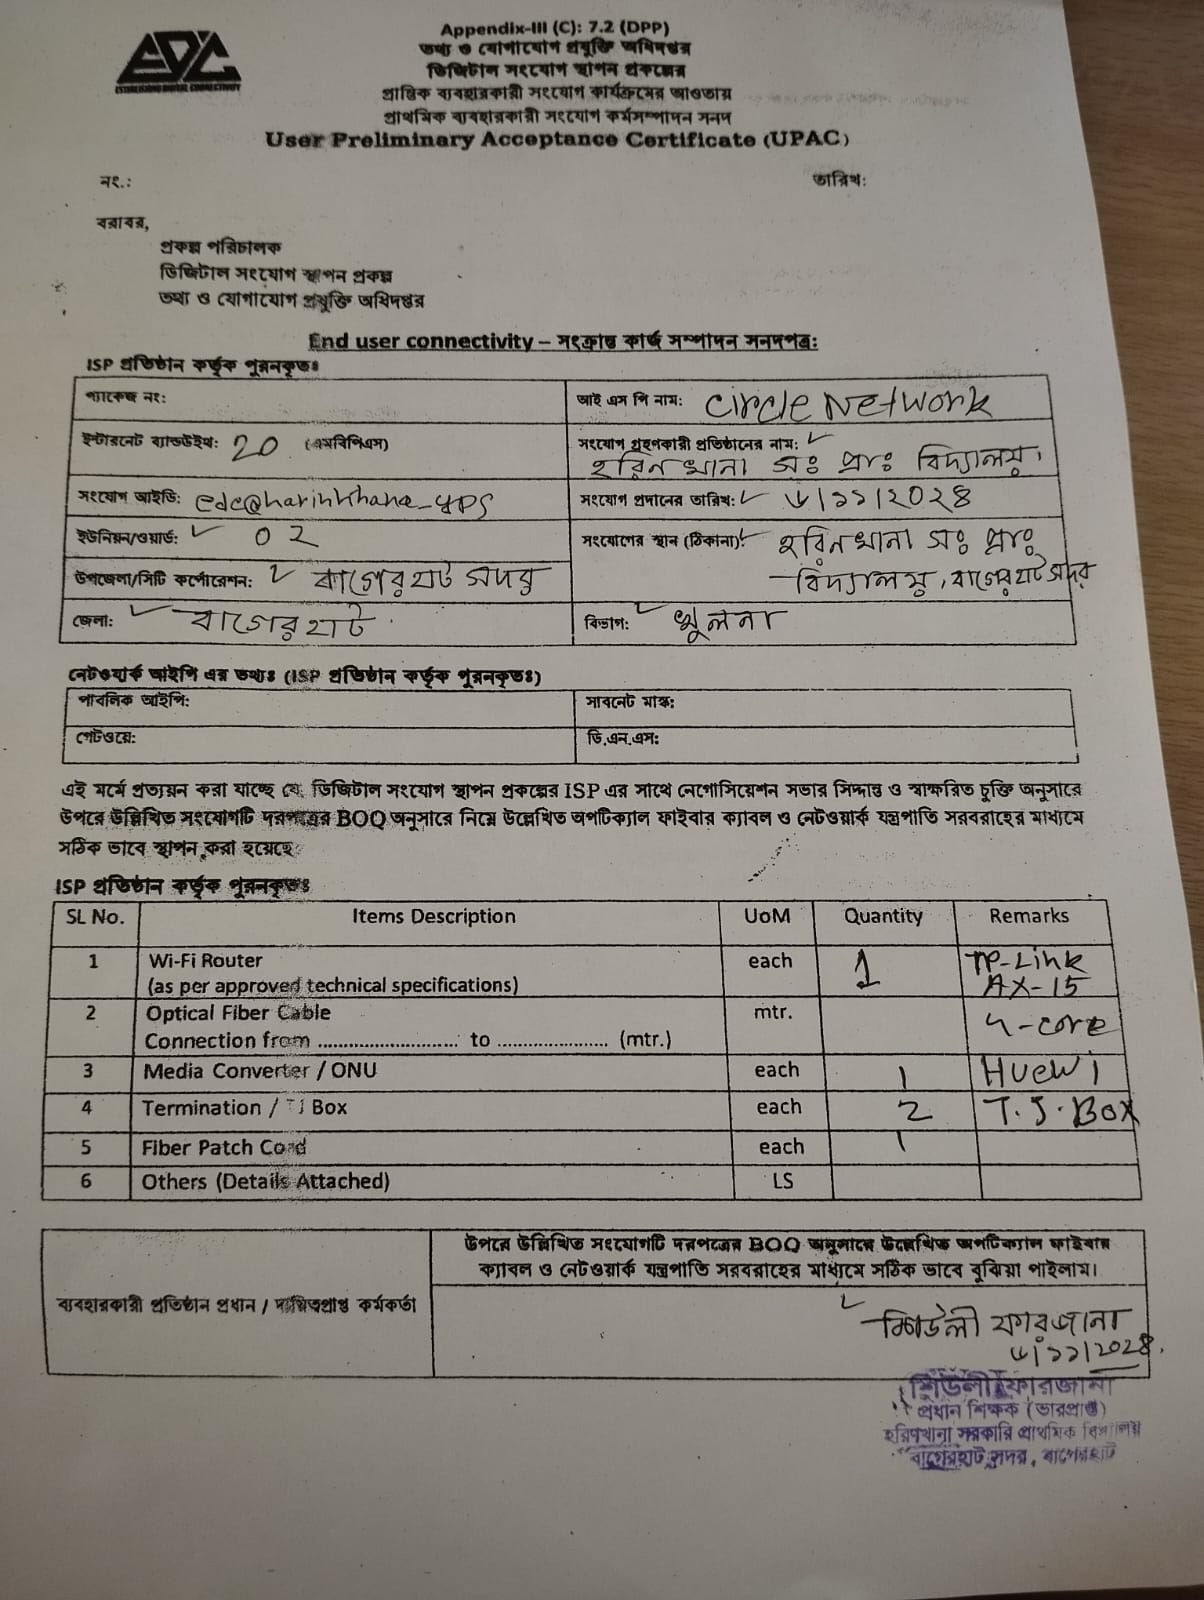 EDC
ESTABLISHING DIGITAL CONNECTIVITY
Appendix-III (C): 7.2 (DPP)
তথ্য ও যোগাযোগ প্রযুক্তি অধিদপ্তর
ডিজিটাল সংযোগ স্থাপন প্রকল্পের
প্রান্তিক ব্যবহারকারী সংযোগ কার্যক্রমের আওতায়
প্রাথমিক ব্যবহারকারী সংযোগ কর্মসম্পাদন সনদ
User Preliminary Acceptance Certificate (UPAC)
নং.: তারিখ:
বরাবর,
প্রকল্প পরিচালক
ডিজিটাল সংযোগ স্থাপন প্রকল্প
তথ্য ও যোগাযোগ প্রযুক্তি অধিদপ্তর
End user connectivity – সংক্রান্ত কার্জ সম্পাদন সনদপত্র:
ISP প্রতিষ্ঠান কর্তৃক পূরনকৃতঃ
প্যাকেজ নং: আই এস পি নাম: circle Network
ইন্টারনেট ব্যান্ডউইথ: 20 (এমবিপিএস) সংযোগ গ্রহণকারী প্রতিষ্ঠানের নাম:
হরিনখানা সঃ প্রাঃ বিদ্যালয়।
সংযোগ আইডি: edc@harinkhana_gps সংযোগ প্রদানের তারিখ: ৬/১১/২০২৪
ইউনিয়ন/ওয়ার্ড: ০২ সংযোগের স্থান (ঠিকানা): হরিনখানা সঃ প্রাঃ
উপজেলা/সিটি কর্পোরেশন: বাগেরহাট সদর বিদ্যালয়, বাগেরহাট সদর
জেলা: বাগেরহাট বিভাগ: খুলনা
নেটওয়ার্ক আইপি এর তথ্যঃ (ISP প্রতিষ্ঠান কর্তৃক পূরনকৃতঃ)
পাবলিক আইপি: সাবনেট মাস্ক:
গেটওয়ে: ডি.এন.এস:
এই মর্মে প্রত্যয়ন করা যাচ্ছে যে, ডিজিটাল সংযোগ স্থাপন প্রকল্পের ISP এর সাথে নেগোসিয়েশন সভার সিদ্ধান্ত ও স্বাক্ষরিত চুক্তি অনুসারে
উপরে উল্লিখিত সংযোগটি দরপত্রের BOQ অনুসারে নিম্নে উল্লেখিত অপটিক্যাল ফাইবার ক্যাবল ও নেটওয়ার্ক যন্ত্রপাতি সরবরাহের মাধ্যমে
সঠিক ভাবে স্থাপন করা হয়েছে
ISP প্রতিষ্ঠান কর্তৃক পূরনকৃতঃ
SL No. Items Description UoM Quantity Remarks
1 Wi-Fi Router each 1 TP-Link
(as per approved technical specifications) AX-15
2 Optical Fiber Cable mtr. 4-core
Connection from ............................ to ...................... (mtr.)
3 Media Converter / ONU each 1 Huewi
4 Termination / TJ Box each 2 T.J.Box
5 Fiber Patch Cord each 1
6 Others (Details Attached) LS
উপরে উল্লিখিত সংযোগটি দরপত্রের BOQ অনুসারে উল্লেখিত অপটিক্যাল ফাইবার
ক্যাবল ও নেটওয়ার্ক যন্ত্রপাতি সরবরাহের মাধ্যমে সঠিক ভাবে বুঝিয়া পাইলাম।
ব্যবহারকারী প্রতিষ্ঠান প্রধান / দায়িত্বপ্রাপ্ত কর্মকর্তা
শিউলী ফারজানা
৬/১১/২০২৪
শিউলী ফারজানা
প্রধান শিক্ষক (ভারপ্রাপ্ত)
হরিণখানা সরকারি প্রাথমিক বিদ্যালয়
বাগেরহাট সদর, বাগেরহাট